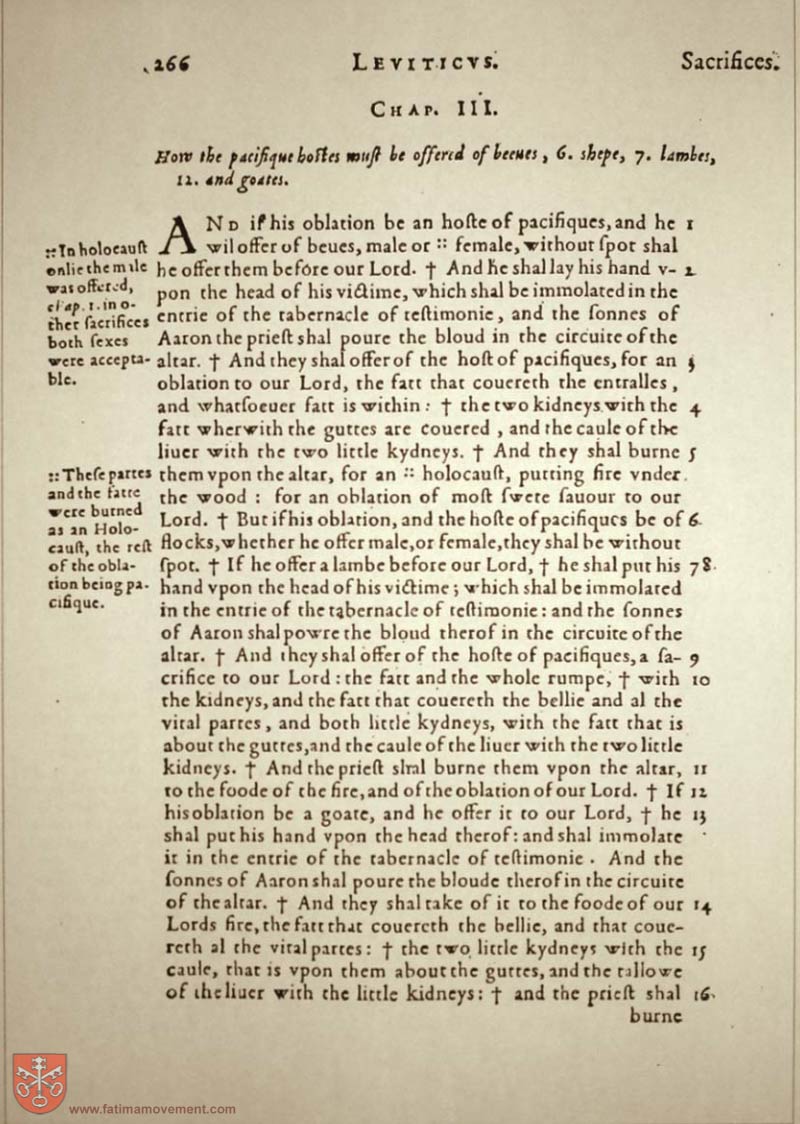 266 LEVITICVS. Sacrifices.
CHAP. III.
How the pacifique hostes must be offered of beeues, 6. shepe, 7. lambes,
12. and goates.
AND if his oblation be an hoſte of pacifiques, and he 1
wil offer of beues, male or :: female, without ſpot shal
he offer them before our Lord. † And he shal lay his hand v- 2
pon the head of his victime, which shal be immolated in the
entrie of the tabernacle of teſtimonie, and the ſonnes of
Aaron the prieſt shal poure the bloud in the circuite of the
altar. † And they shal offer of the hoſt of pacifiques, for an 3
oblation to our Lord, the fatt that couereth the entralles,
and whatſoeuer fatt is within: † the two kidneys with the 4
fatt wherwith the guttes are couered, and the caule of the
liuer with the two little kydneys. † And they shal burne 5
them vpon the altar, for an :: holocauſt, putting fire vnder
the wood: for an oblation of moſt ſwete ſauour to our
Lord. † But if his oblation, and the hoſte of pacifiques be of 6
flocks, whether he offer male, or female, they shal be without
ſpot. † If he offer a lambe before our Lord, † he shal put his 7 8.
hand vpon the head of his victime; which shal be immolated
in the entrie of the tabernacle of teſtimonie: and the ſonnes
of Aaron shal powre the bloud therof in the circuite of the
altar. † And they shal offer of the hoſte of pacifiques, a ſa- 9
crifice to our Lord: the fatt and the whole rumpe, † with 10
the kidneys, and the fatt that couereth the bellie and al the
vital partes, and both little kydneys, with the fatt that is
about the guttes, and the caule of the liuer with the two little
kidneys. † And the prieſt shal burne them vpon the altar, 11
to the foode of the fire, and of the oblation of our Lord. † If 12
his oblation be a goate, and he offer it to our Lord, † he 13
shal put his hand vpon the head therof: and shal immolate
it in the entrie of the tabernacle of teſtimonie. And the
ſonnes of Aaron shal poure the bloude therof in the circuite
of the altar. † And they shal take of it to the foode of our 14
Lords fire, the fatt that couereth the bellie, and that coue-
reth al the vital partes: † the two little kydneys with the 15
caule, that is vpon them about the guttes, and the tallowe
of the liuer with the little kidneys: † and the prieſt shal 16.
burne
:: In holocauſt
onlie the male
was offered,
chap. 1. in o-
ther ſacrifices
both ſexes
were accepta-
ble.
:: Theſe partes
and the fatte
were burned
as an Holo-
cauſt, the reſt
of the obla-
tion being pa-
cifique.
www.fatimamovement.com